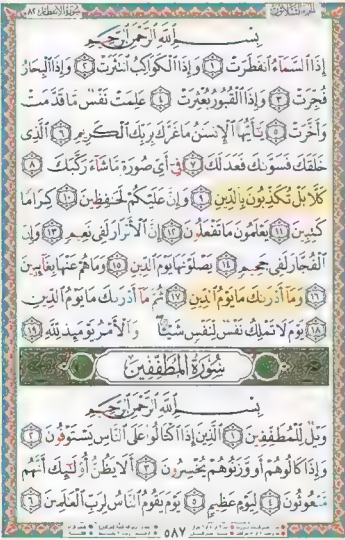 سورة الانفطار ٨٢
الجزء الثلاثون
بِسْمِ ٱللَّهِ ٱلرَّحْمَٰنِ ٱلرَّحِيمِ
إِذَا ٱلسَّمَآءُ ٱنفَطَرَتْ ۝١ وَإِذَا ٱلْكَوَاكِبُ ٱنتَثَرَتْ ۝٢ وَإِذَا ٱلْبِحَارُ
فُجِّرَتْ ۝٣ وَإِذَا ٱلْقُبُورُ بُعْثِرَتْ ۝٤ عَلِمَتْ نَفْسٌ مَّا قَدَّمَتْ
وَأَخَّرَتْ ۝٥ يَٰٓأَيُّهَا ٱلْإِنسَٰنُ مَا غَرَّكَ بِرَبِّكَ ٱلْكَرِيمِ ۝٦ ٱلَّذِى
خَلَقَكَ فَسَوَّىٰكَ فَعَدَلَكَ ۝٧ فِىٓ أَىِّ صُورَةٍ مَّا شَآءَ رَكَّبَكَ ۝٨
كَلَّا بَلْ تُكَذِّبُونَ بِٱلدِّينِ ۝٩ وَإِنَّ عَلَيْكُمْ لَحَٰفِظِينَ ۝١٠ كِرَامًا
كَٰتِبِينَ ۝١١ يَعْلَمُونَ مَا تَفْعَلُونَ ۝١٢ إِنَّ ٱلْأَبْرَارَ لَفِى نَعِيمٍ ۝١٣ وَإِنَّ
ٱلْفُجَّارَ لَفِى جَحِيمٍ ۝١٤ يَصْلَوْنَهَا يَوْمَ ٱلدِّينِ ۝١٥ وَمَا هُمْ عَنْهَا بِغَآئِبِينَ
۝١٦ وَمَآ أَدْرَىٰكَ مَا يَوْمُ ٱلدِّينِ ۝١٧ ثُمَّ مَآ أَدْرَىٰكَ مَا يَوْمُ ٱلدِّينِ
۝١٨ يَوْمَ لَا تَمْلِكُ نَفْسٌ لِّنَفْسٍ شَيْـًٔا ۖ وَٱلْأَمْرُ يَوْمَئِذٍ لِّلَّهِ ۝١٩
سُورَةُ المُطَفِّفِينَ
بِسْمِ ٱللَّهِ ٱلرَّحْمَٰنِ ٱلرَّحِيمِ
وَيْلٌ لِّلْمُطَفِّفِينَ ۝١ ٱلَّذِينَ إِذَا ٱكْتَالُوا۟ عَلَى ٱلنَّاسِ يَسْتَوْفُونَ ۝٢
وَإِذَا كَالُوهُمْ أَو وَّزَنُوهُمْ يُخْسِرُونَ ۝٣ أَلَا يَظُنُّ أُو۟لَٰٓئِكَ أَنَّهُم
مَّبْعُوثُونَ ۝٤ لِيَوْمٍ عَظِيمٍ ۝٥ يَوْمَ يَقُومُ ٱلنَّاسُ لِرَبِّ ٱلْعَٰلَمِينَ ۝٦
٥٨٧